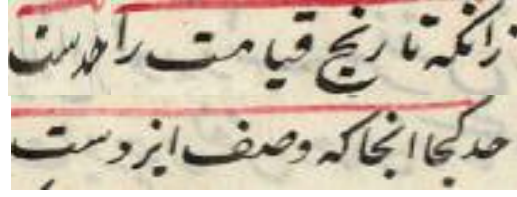 زانکه تاریخ قیامت را حدست
حد کجا انجا که وصف ایزدست